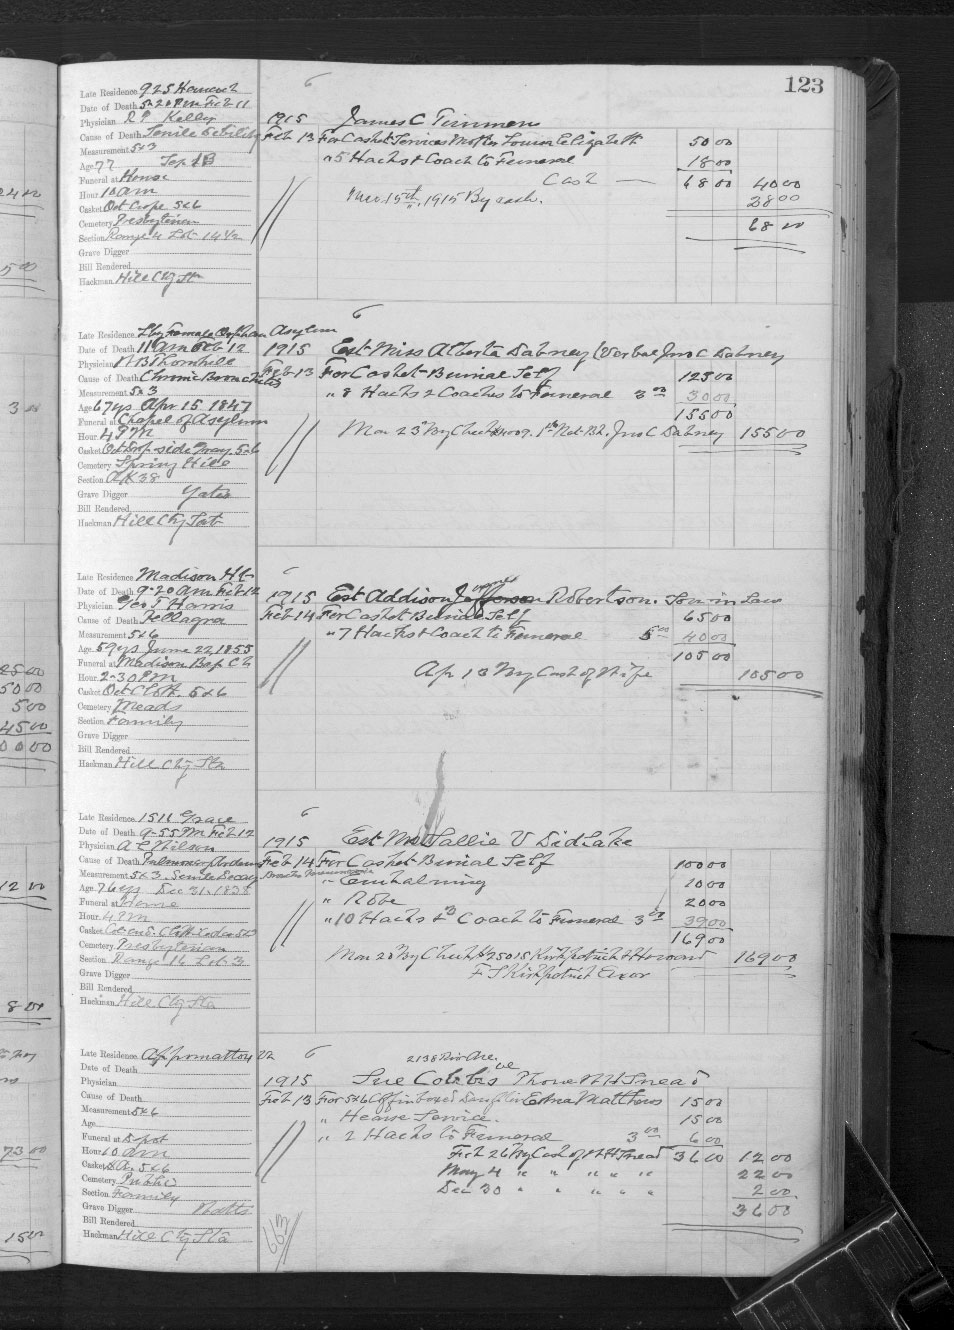 123
Late Residence 925 Hancock
Date of Death 5-20 PM Feb 11
Physician R P Kelley
Cause of Death Senile Debility
Measurement 5x3
Age 77 Sep 13
Funeral at House
Hour 10 am
Casket Oct Crepe 5x6
Cemetery Presbyterian
Section Range 4 Lot 14 1/2
Grave Digger
Bill Rendered
Hackman Hill City Sta
6
1915 James C Timmons
Feb 13 For Casket Services Mother Louisa Elizabeth 50 00
" 5 Hacks & Coach to Funeral 18 00
Cash — 68 00 40 00
Mar 15th, 1915 By cash. 28 00
68 00
Late Residence Lbg Female Orphan Asylum
Date of Death 11 am Feb 12
Physician N B Thornhill
Cause of Death Chronic Bronchitis
Measurement 5x3
Age 67 ys Apr 15, 1847
Funeral at Chapel of Asylum
Hour 4 PM
Casket Oct Drop side Gray 5x6
Cemetery Spring Hill
Section A K 38
Grave Digger Yates
Bill Rendered
Hackman Hill City Stab
6
1915 Est Miss Alberta Dabney (Verbal Jno C Dabney
Feb 13 For Casket Burial Self 125 00
" 8 Hacks & Coaches to Funeral 3 00 30 00
155 00
Mar 23 By Check #4009. 1st Nat Bk. Jno C Dabney 155 00
Late Residence Madison Hts
Date of Death 9-20 am Feb 12
Physician Geo T Harris
Cause of Death Pellagra
Measurement 5x6
Age 59 ys June 22, 1855
Funeral at Madison Bap Ch
Hour 2-30 PM
Casket Oct Cloth 5x6
Cemetery Meads
Section Family
Grave Digger
Bill Rendered
Hackman Hill City Sta
6
1915 Est Addison Jefferson Robertson. Son in Law
Feb 14 For Casket Burial Self 65 00
" 7 Hacks & Coach to Funeral 5 00 40 00
105 00
Ap 13 By Cash of Wife 105 00
Late Residence 1511 Grace
Date of Death 9-55 PM Feb 12
Physician A C Wilson
Cause of Death Pulmonary Oedema
Measurement 5x3. Senile Decay
Age 76 ys Dec 31, 1838
Funeral at Home
Hour 4 PM
Cemetery Presbyterian
Section Range 16 Lot 3
Grave Digger
Bill Rendered
Hackman Hill City Sta
6
1915 Est Mrs Sallie V Didlake
Feb 14 For Casket Burial Self 100 00
Broncho Pneumonia
" Embalming 10 00
" Robe 20 00
" 10 Hacks & 3 Coach to Funeral 3 00 39 00
169 00
Mar 20 By Check #25015 Kirkpatrick & Howard 169 00
F S Kirkpatrick Exor
Late Residence Appomattox Va
Date of Death
Physician
Cause of Death
Measurement 5x6
Age
Funeral at Depot
Hour 10 am
Casket 5x6
Cemetery Public
Section Family
Grave Digger Watts
Bill Rendered
Hackman Hill City Sta
6
2138 Riv Ave.
1915 Sue Cobbs Phone W H Snead
Feb 13 For 5x6 Coffin boxed Daughter Edna Matthews 15 00
" Hearse Service. 15 00
" 2 Hacks to Funeral 3 00 6 00
Feb 26 By Cash of W H Snead 36 00 12 00
May 4 " " " " " " 22 00
Dec 30 " " " " " 2 00
36 00